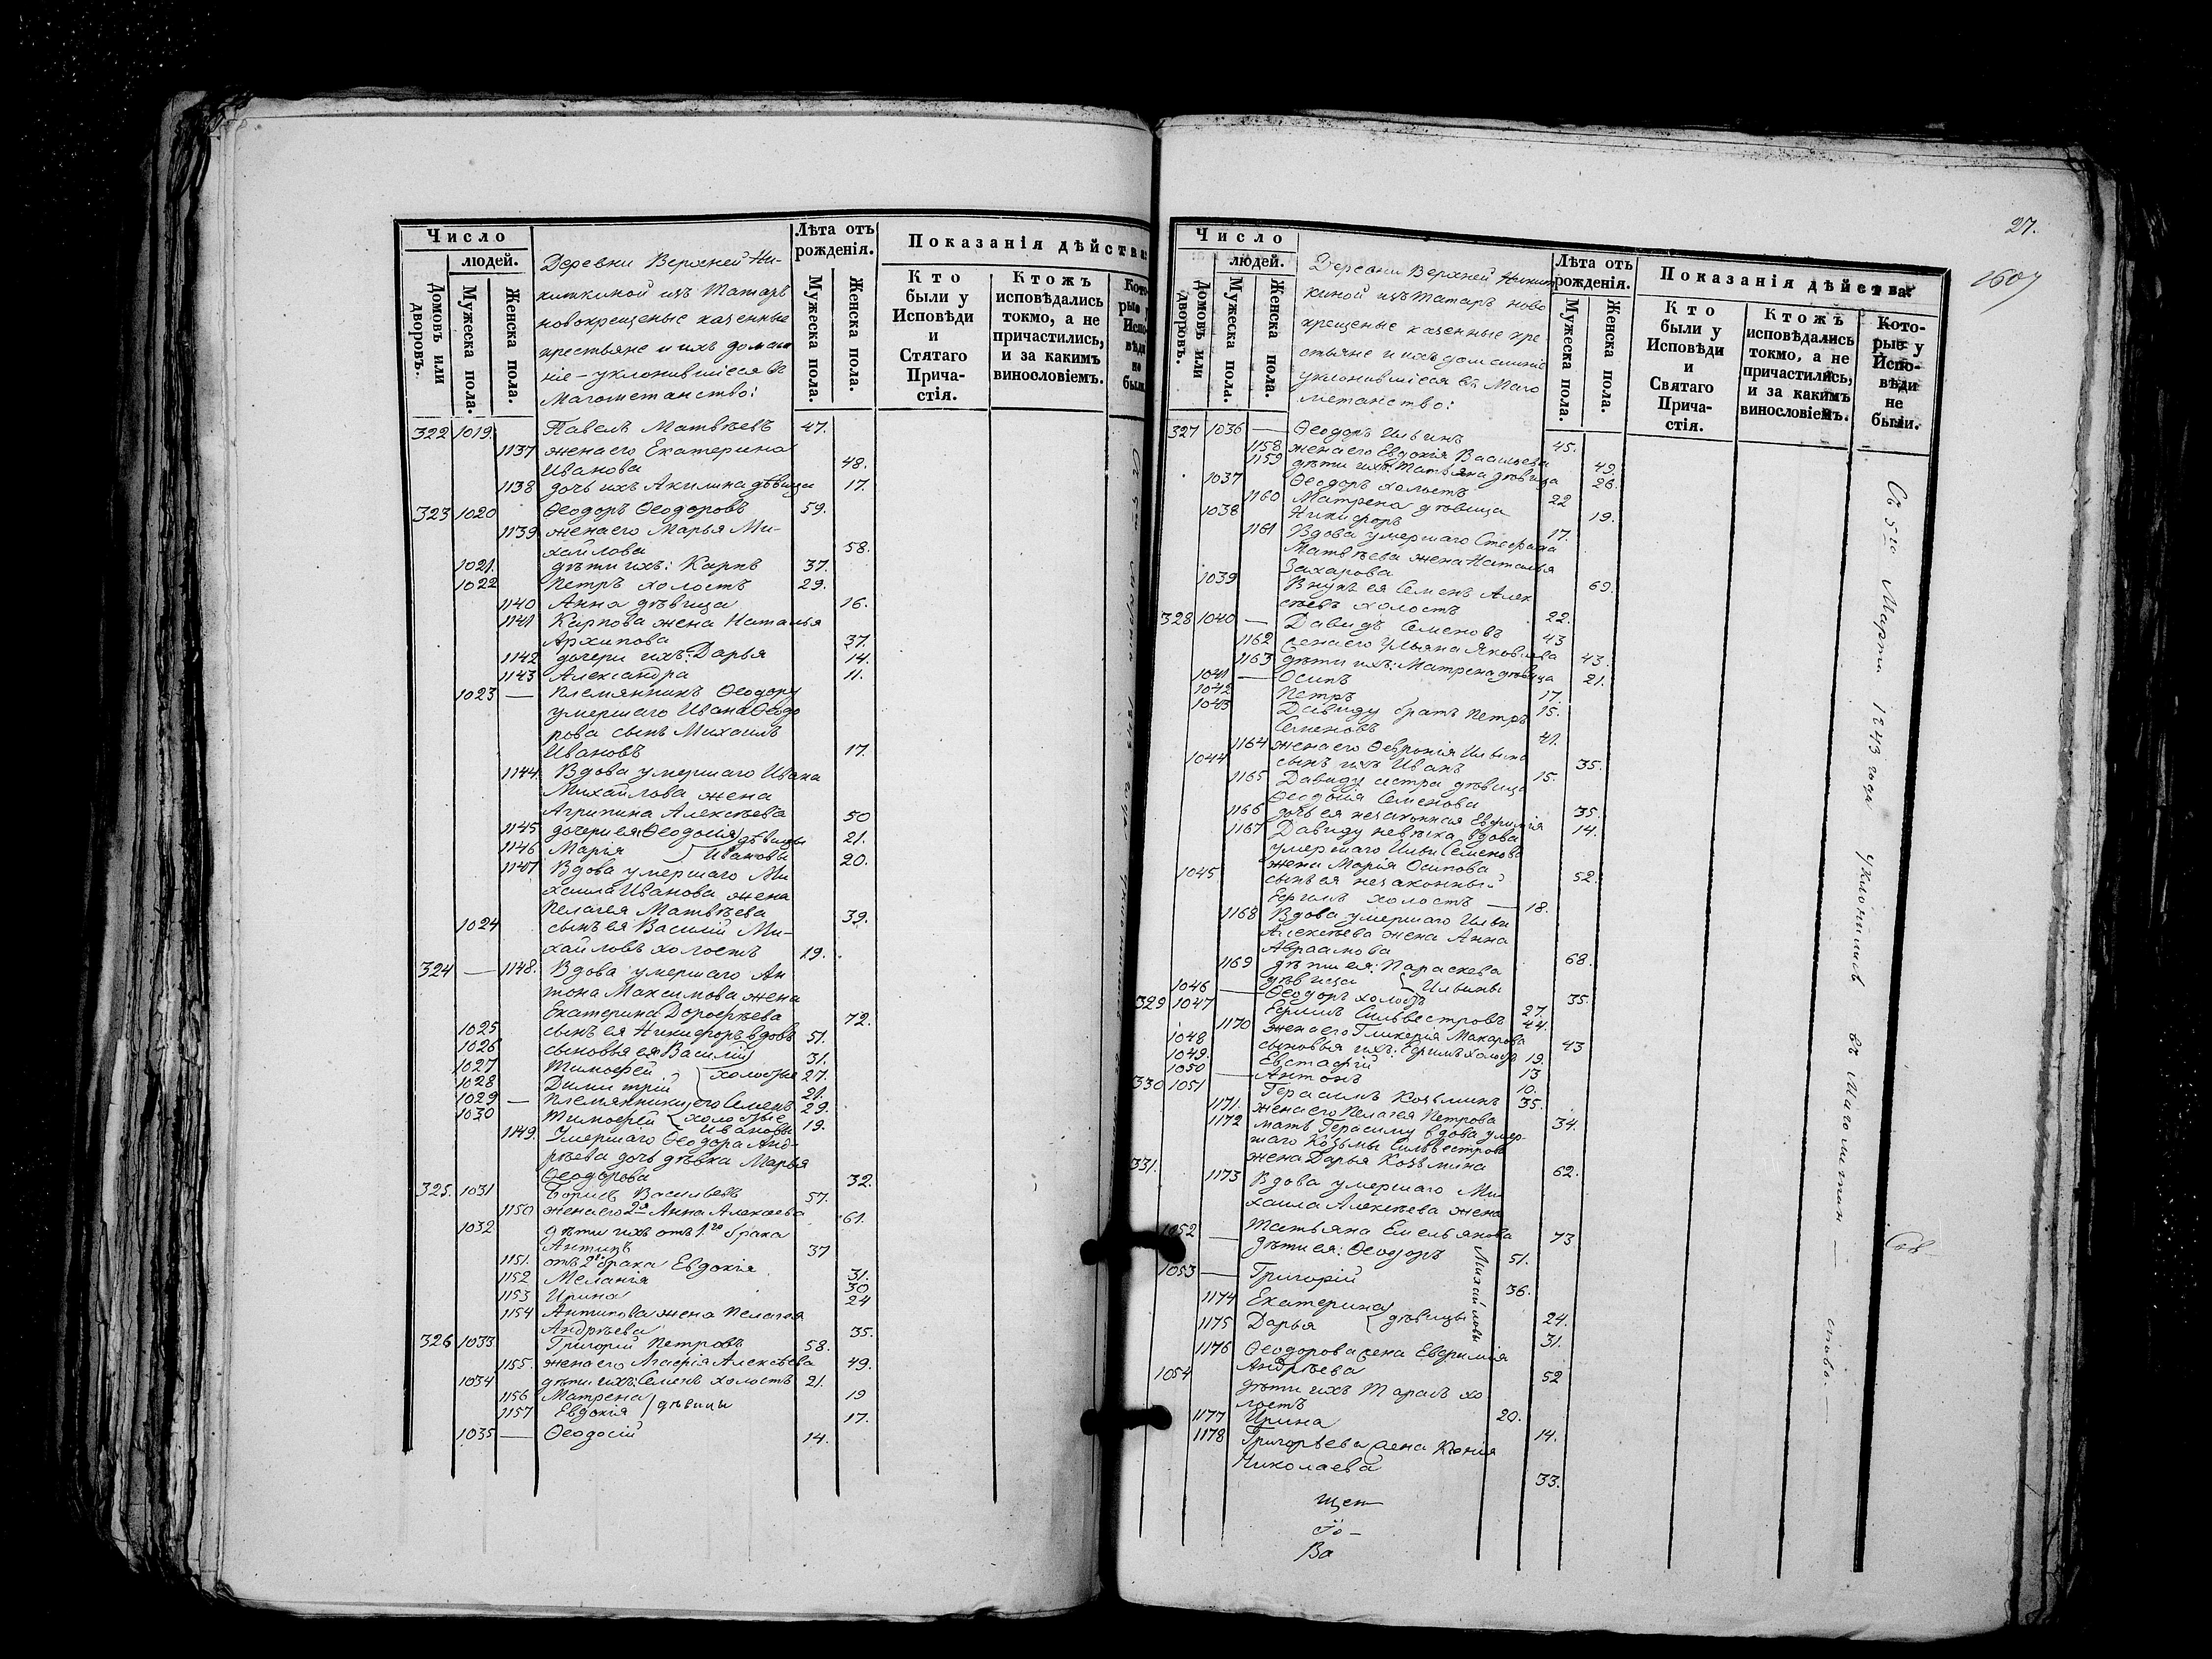 Число
людей.
Домовъ или дворовъ.
Мужеска пола.
Женска пола.
Деревни Верхней Ни-
киткиной изъ Татаръ
новокрещеные казенные
крестьяне и ихъ домаш
ніе - уклонившіеся въ
Магометанство:
Лѣта отъ рожденія.
Мужеска пола.
Женска пола.
Показанія дѣйства
Кто были у Исповѣди и Стятаго Прича-стія.
Ктожъ исповѣдались токмо, а не причастились, и за какимъ винословіемъ.
322 1019. Павелъ Матвѣевъ 47.
1137 жена его Екатерина
Иванова 48.
1138 дочь ихъ Акилина дѣвица 17.
323 1020 Ѳеодоръ Ѳеодоровъ 59.
1139 жена его Марья Ми-
хайлова 58.
1021. дѣти ихъ: Карпъ 37.
1022 Петръ холостъ 29.
1140 Анна дѣвица 16.
1141 Карпова жена Наталья
Архипова 37.
1142 дочери ихъ: Дарья 14.
1143 Александра 11.
1023 — Племянникъ Ѳеодору
умершаго Ивана Ѳеодо
рова сынъ Михаилъ
Ивановъ 17.
1144. Вдова умершаго Ивана
Михайлова жена
Агрипина Алексѣева 50
1145 дочери ея Ѳеодосія дѣвицы 21.
1146 Марія Ивановы 20.
1147 Вдова умершаго Ми
хаила Иванова жена
Пелагея Матвѣева 39.
1024 сынъ ея Василій Ми-
хайловъ холостъ 19.
324 — 1148. Вдова умершаго Ан
тона Максимова жена
Екатерина Дорофѣева 72.
1025 сынъ ея Никифоръ вдовъ 51.
1026 сыновья его Василій 31.
1027 Тимофей холостые 27.
1028 Димитрій 21.
1029 — племянники его Семенъ 29.
1030 Тимофей холостые Ивановы 19.
1149. Умершаго Ѳеодора Анд-
рѣева дочь дѣвка Марья
Ѳеодорова 32.
325. 1031 Борисъ Васильевъ 57.
1150 жена его 2я Анна Алексѣева 61.
1032 дѣти ихъ отъ 1го брака
Антипъ 37
1151. отъ 2го брака Евдокія 31.
1152 Меланія 30
1153 Ирина 24
1154 Антипова жена Пелагея
Андрѣева 35.
326 1033 Григорій Петровъ 58.
1155. жена его Агафія Алексѣева 49.
1034 дѣти ихъ: Семенъ холостъ 21.
1156 Матрена дѣвицы 19
1157 Евдокія 17.
1035 — Ѳеодосій 14.
27.
1607
Число
людей.
Домовъ или дворовъ.
Мужеска пола.
Женска пола.
Деревни Верхней Никит
киной изъ Татаръ ново
крещеные казенные кре
стьяне и ихъ домашніе
уклонившіеся въ Маго
метанство:
Лѣта отъ рожденія.
Мужеска пола.
Женска пола.
Показанія дѣйства
Кто были у Исповѣди и Святаго Прича-стія.
Ктожъ исповѣдались токмо, а не причастились, и за какимъ винословіемъ.
Кото-рые у Испо-вѣди не были.
327 1036 — Ѳеодоръ Ильинъ 45.
1158 жена его Евдокія Васильева 49.
1159 дѣти ихъ: Татьяна дѣвица 26.
1037 Ѳеодоръ холостъ 22
1160 Матрена дѣвица 19.
1038 Никифоръ 17.
1161 Вдова умершаго Стефана
Матвѣева жена Наталья
Захарова 69.
1039 Внукъ ея Семенъ Алек
сѣевъ холостъ 22.
328 1040 — Давидъ Семеновъ 43
1162 жена его Ульяна Яковлева 43.
1163 дѣти ихъ: Матрена дѣвица 21.
1041 — Осипъ 17.
1042 Петръ 15.
1043 Давиду братъ Петръ
Семеновъ 41.
1164 жена его Ѳевронія Ильина 35.
1044 сынъ ихъ Иванъ 15.
1165 Давиду сестра дѣвица
Ѳеодосія Семенова 35.
1166 дочь ея незаконная Евфимія 14.
1167 Давиду невѣска вдова
умершаго Ильи Семенова
жена Марія Осипова 52.
1045 сынъ ея незаконный
Ефимъ холостъ — 18.
1168 Вдова умершаго Ильи
Алексѣева жена Анна
Авраамова 68.
1169 дѣти ея: Параскева
дѣвица Ильины 35.
1046 — Ѳеодоръ холостъ 27.
329 1047 Ефимъ Сильвестровъ 44.
1170 жена его Гликерія Макарова 43
1048 сыновья ихъ: Ефимъ холостъ 19.
1049. Евстафій 13
1050 — Антонъ 10.
330 1051 Герасимъ Козьминъ 35.
1171. жена его Пелагея Петрова 34.
1172 мать Герасиму вдова умер-
шаго Козьмы Сильвестрова
жена Дарья Козьмина 62.
331. 1173 Вдова умершаго Ми
хаила Алексѣева жена
Татьяна Емельянова 73
1052 — дѣти ея: Ѳеодоръ 51.
Михайловы
1053 — Григорій 36.
1174 Екатерина дѣвицы 24.
1175 Дарья 31.
1176 Ѳеодорова жена Евфимія
Андрѣева 52
1054 дѣти ихъ Тарасъ хо
лостъ 20.
1177 Ирина 14.
1178 Григорьева жена Ксенія
Николаева 33.
Съ 5го Марта 1843 года уклонились въ Магометан — ство. —
щен-
Ва